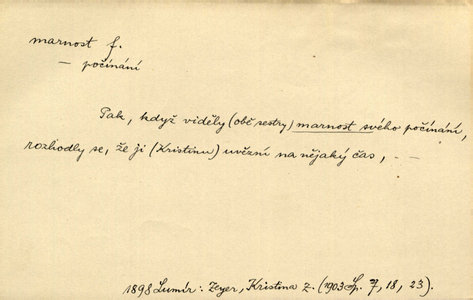 marnost f.
— počínání
Pak, když viděly (obě sestry) marnost svého počínání,
rozhodly se, že ji (Kristinu) uvězní na nějaký čas, – –
1898 Lumír: Zeyer, Kristina z. (1903 Sp. 7, 18, 23).